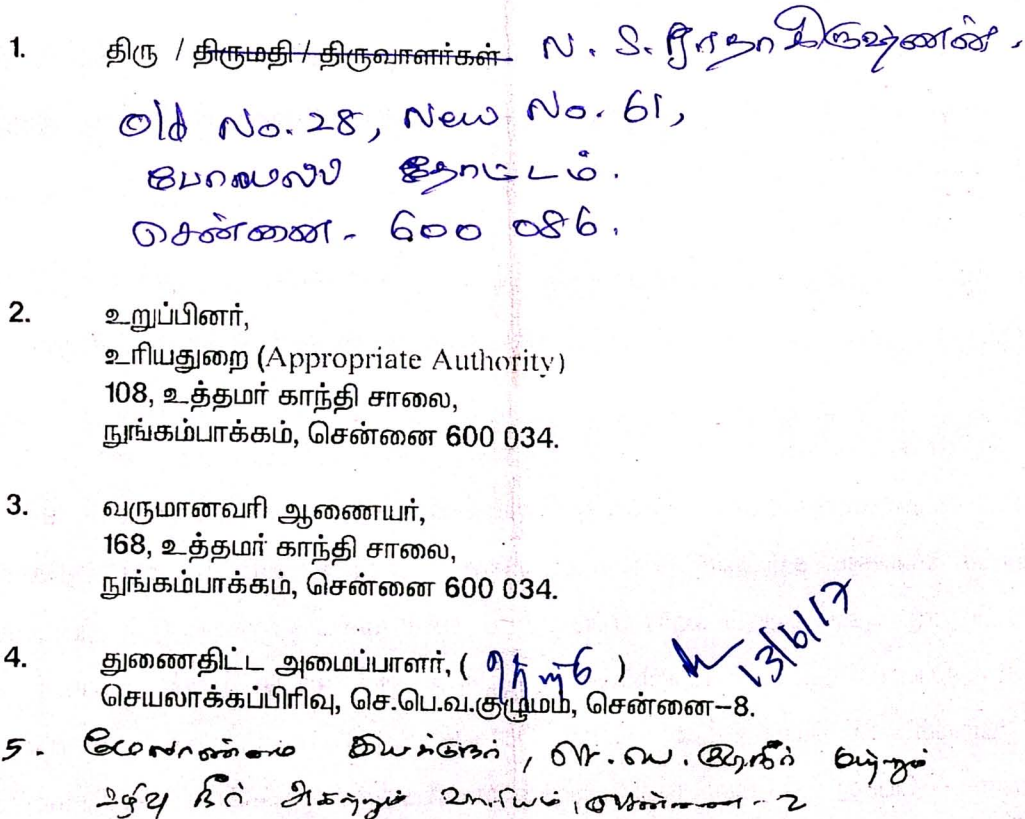 1. திரு / திருமதி / திருவாளர்கள் N. S. ராதாகிருஷ்ணன்.
Old No. 28, New No. 61,
தோட்டம்.
சென்னை - 600 086.
2. உறுப்பினர்,
உரியதுறை (Appropriate Authority)
108, உத்தமர் காந்தி சாலை,
நுங்கம்பாக்கம், சென்னை 600 034.
3. வருமானவரி ஆணையர்,
168, உத்தமர் காந்தி சாலை,
நுங்கம்பாக்கம், சென்னை 600 034.
13/6/17
4. துணைதிட்ட அமைப்பாளர், ( )
செயலாக்கப்பிரிவு, செ.பெ.வ.குழுமம், சென்னை–8.
5. மேலாண்மை இயக்குநர், குடிநீர் மற்றும்
கழிவு நீர் அகற்றும் வாரியம், சென்னை - 2